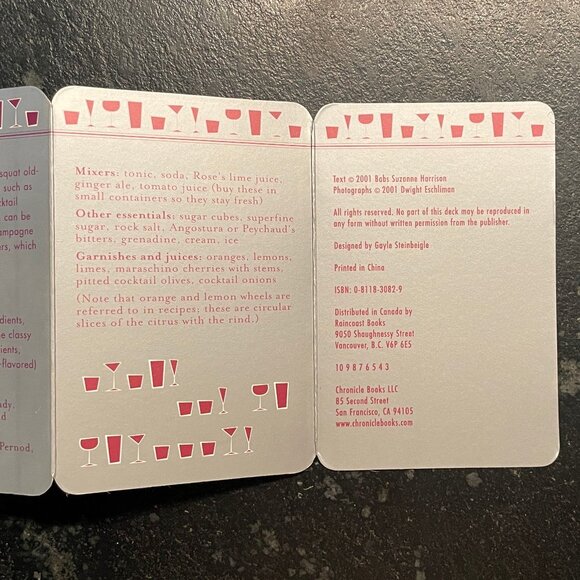 squat old-
such as
cktail
can be
mpagne
rs, which
dients,
e classy
ients,
-flavored)
dy.
d
Pernod,
Mixers: tonic, soda, Rose's lime juice,
ginger ale, tomato juice (buy these in
small containers so they stay fresh)
Other essentials: sugar cubes, superfine
sugar, rock salt, Angostura or Peychaud's
bitters, grenadine, cream, ice
Garnishes and juices: oranges, lemons,
limes, maraschino cherries with stems,
pitted cocktail olives, cocktail onions
(Note that orange and lemon wheels are
referred to in recipes; these are circular
slices of the citrus with the rind.)
Text © 2001 Babs Suzanne Harrison
Photographs © 2001 Dwight Eschliman
All rights reserved. No part of this deck may be reproduced in
any form without written permission from the publisher.
Designed by Gayle Steinbeigle
Printed in China
ISBN: 0-8118-3082-9
Distributed in Canada by
Raincoast Books
9050 Shaughnessy Street
Vancouver, B.C. V6P 6E5
10 9 8 7 6 5 4 3
Chronicle Books LLC
85 Second Street
San Francisco, CA 94105
www.chroniclebooks.com